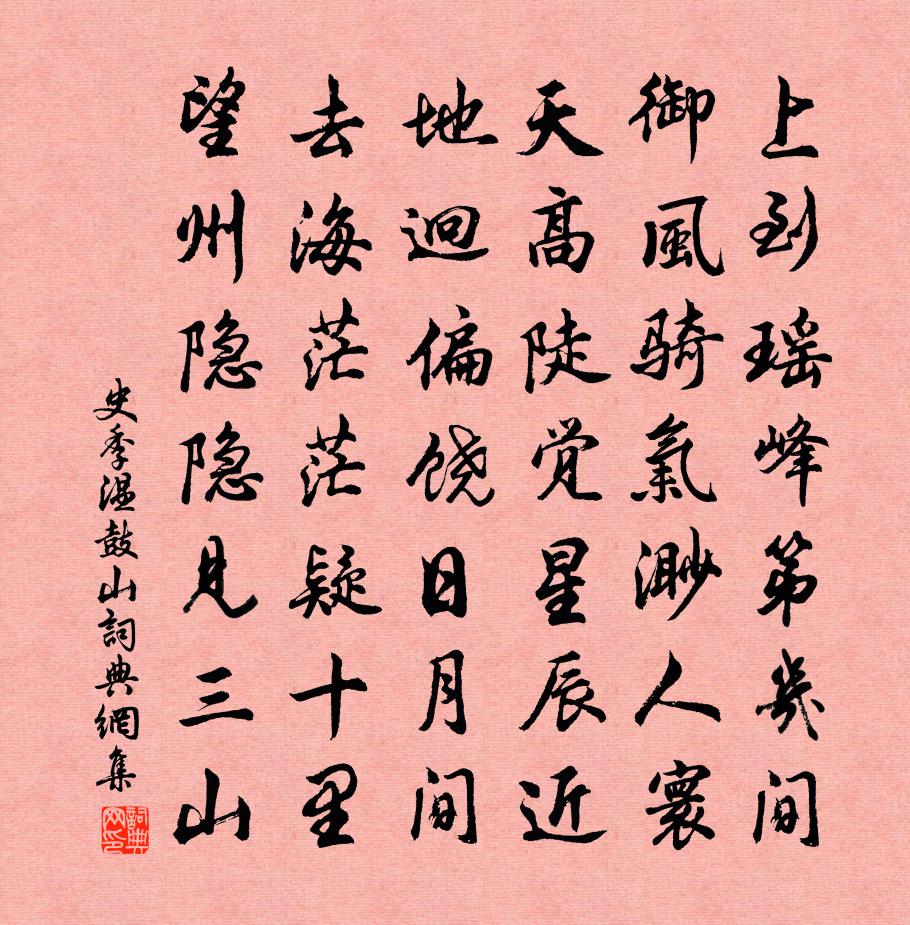 上到瑶峰第几间
御風骑氣渺人寰
天高陡觉星辰近
地迥偏饶日月间
去海茫茫疑十里
望州隐隐見三山
史季温鼓山詞典網集
詞典网印